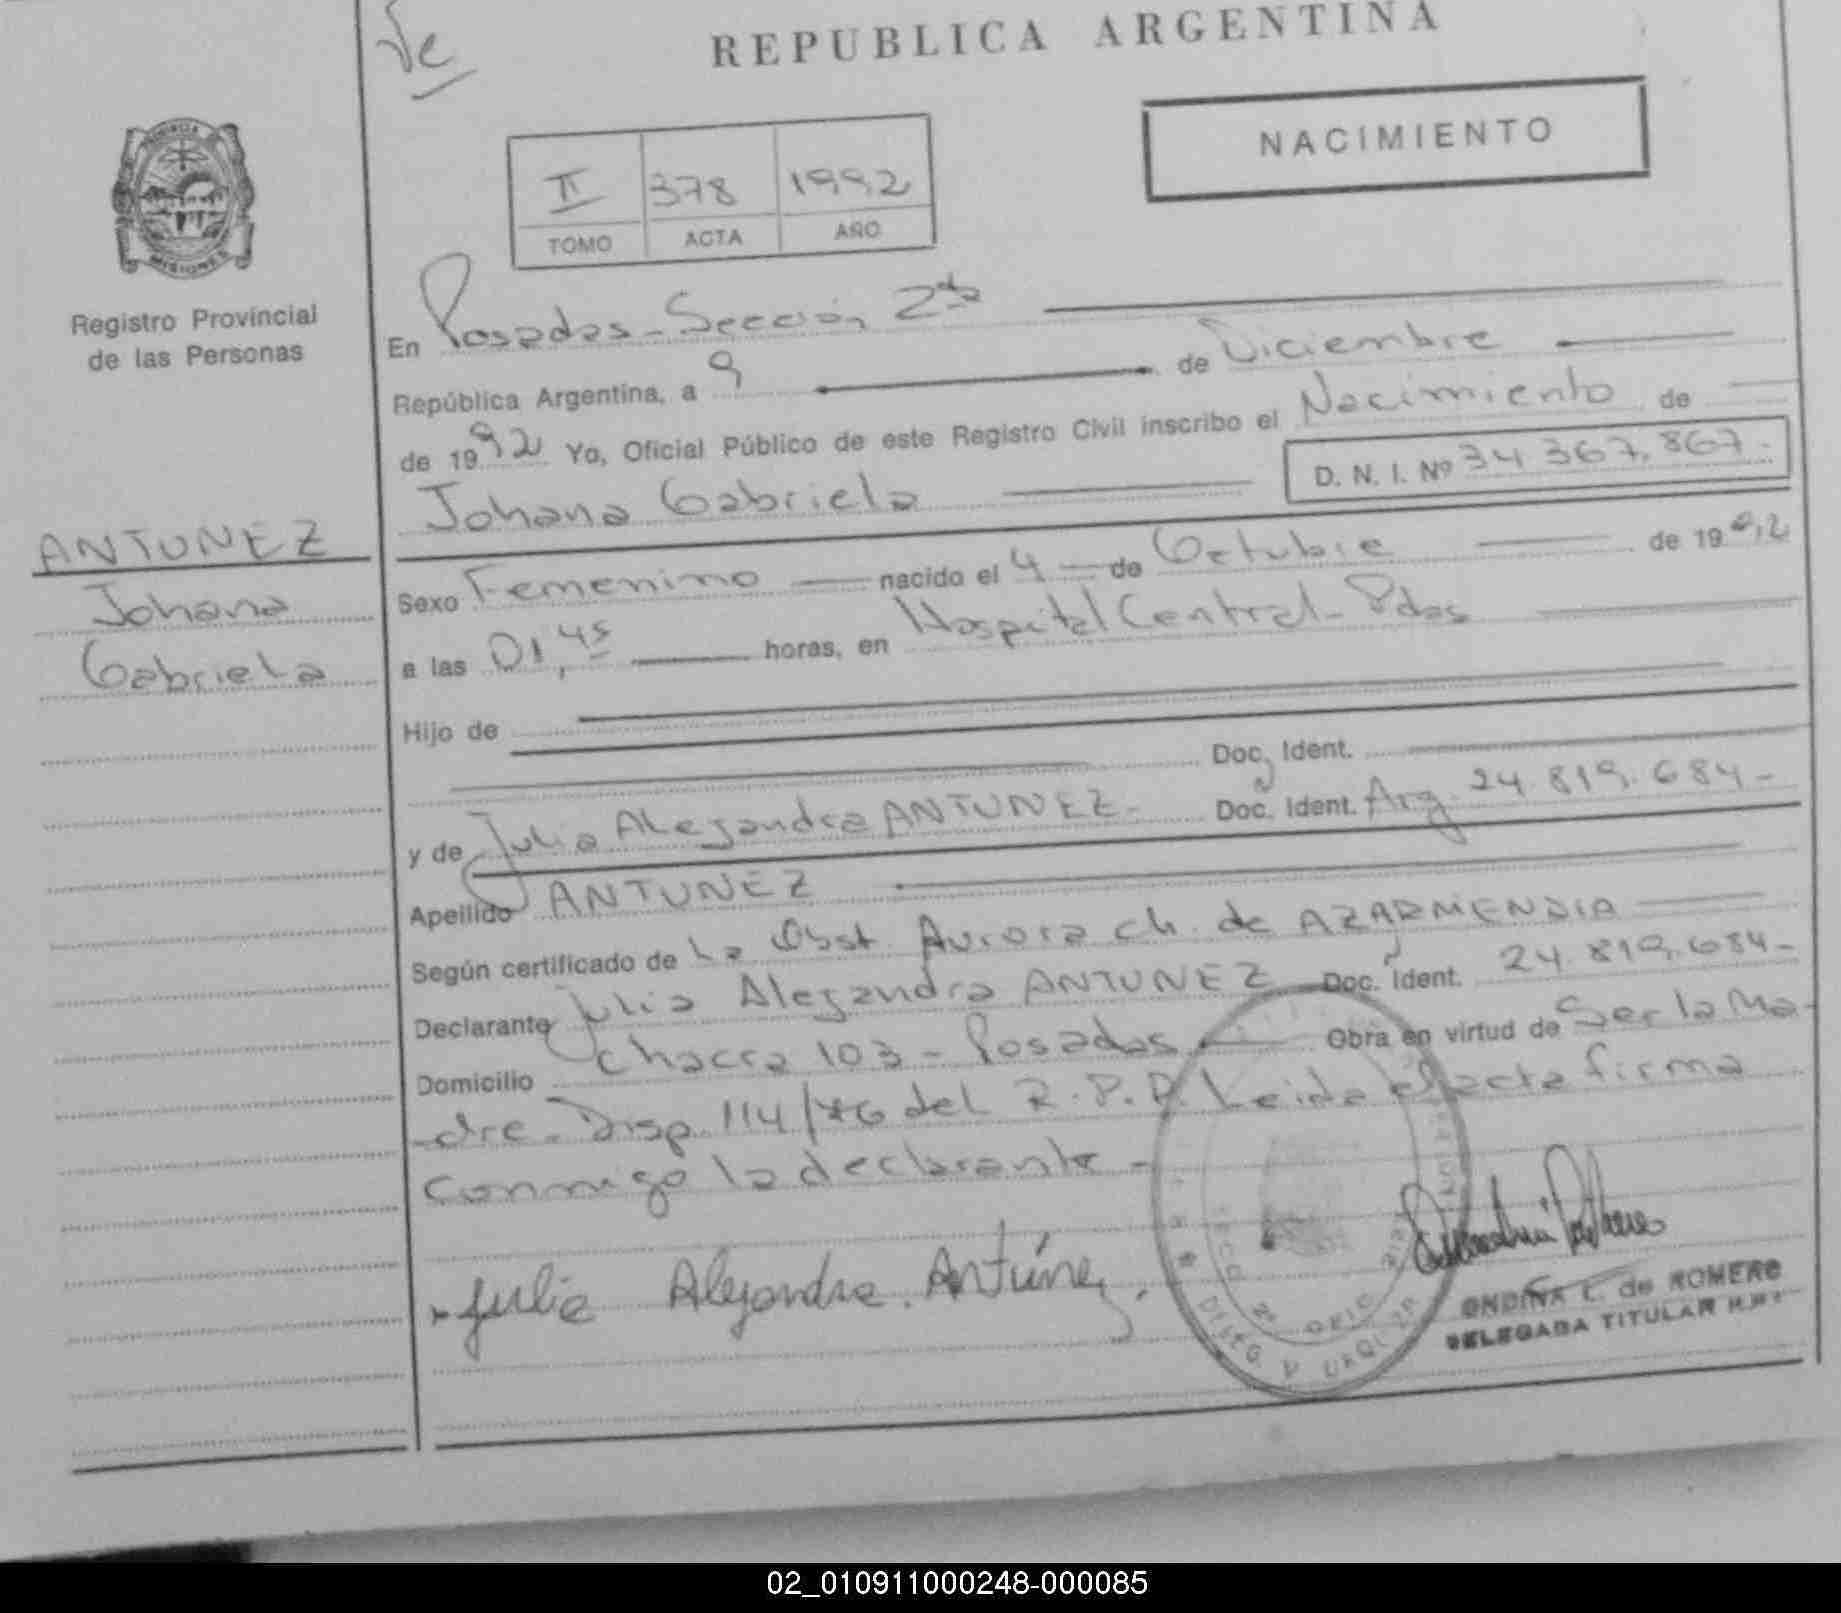 REPUBLICA ARGENTINA
NACIMIENTO
II 378 1992
TOMO ACTA AÑO
MISIONES
Registro Provincial
de las Personas
ANTUNEZ
Johana
Gabriela
En Posadas - Sección 2da
República Argentina, a 9 de Diciembre
de 1992 Yo, Oficial Público de este Registro Civil inscribo el Nacimiento de
Johana Gabriela D. N. I. Nº 34 367.867-
Sexo Femenino nacido el 4 de Octubre de 1992
a las 01,45 horas, en Hospital Central - Pdas
Hijo de
Doc. Ident.
y de Julia Alejandra ANTUNEZ- Doc. Ident. Arg. 24.819.684-
Apellido ANTUNEZ
Según certificado de La Obst. Aurora Ch. de AZARMENDIA
Declarante Julia Alejandra ANTUNEZ Doc. Ident. 24.819.684-
Domicilio Chacra 103 - Posadas Obra en virtud de Ser la Ma-
dre - Disp. 114/76 del R.P.P. Leida el acta firma
conmigo la declarante -
Julia Alejandra Antúnez.
ONDINA C. de ROMERO
DELEGADA TITULAR
02_010911000248-000085